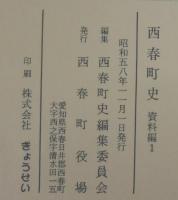 西春町史 資料編1
昭和五八年一一月一日発行
編集 西春町史編集委員会
発行 西春町役場
愛知県西春日井郡西春町
大字西之保字清水田一五
印刷 株式会社 ぎょうせい